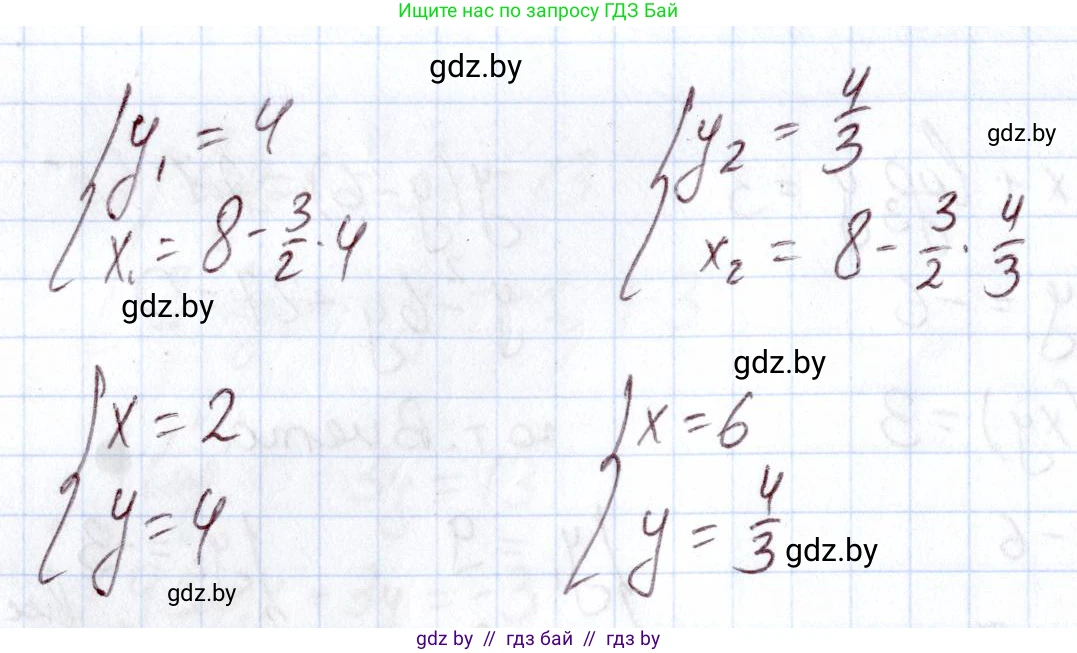 Ищите нас по запросу ГДЗ Бай
gdz.by
{ y₁ = 4
x₁ = 8 - 3/2 · 4
gdz.by
{ y₂ = 4/3
x₂ = 8 - 3/2 · 4/3
gdz.by
gdz.by
{ x = 2
y = 4
gdz.by
{ x = 6
y = 4/3
gdz.by
gdz by // гдз бай // гдз by